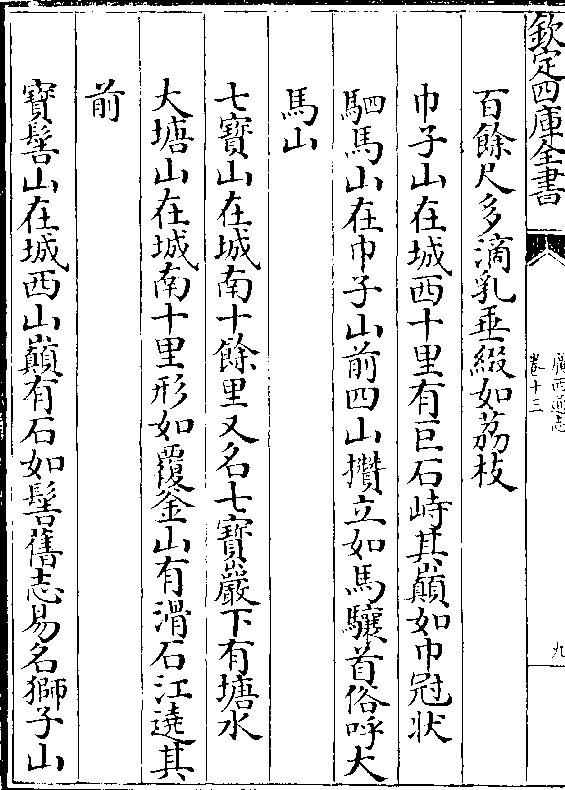 欽定四庫全書
廣西通志
卷十三
九
百餘尺多滴乳垂綴如荔枝
巾子山在城西十里有巨石峙其巔如巾冠狀
駟馬山在巾子山前四山攢立如馬驤首俗呼大
馬山
七寶山在城南十餘里又名七寶巖下有塘水
大塘山在城南十里形如覆釜山有滑石江遶其
前
寶髻山在城西山巔有石如髻舊志易名獅子山